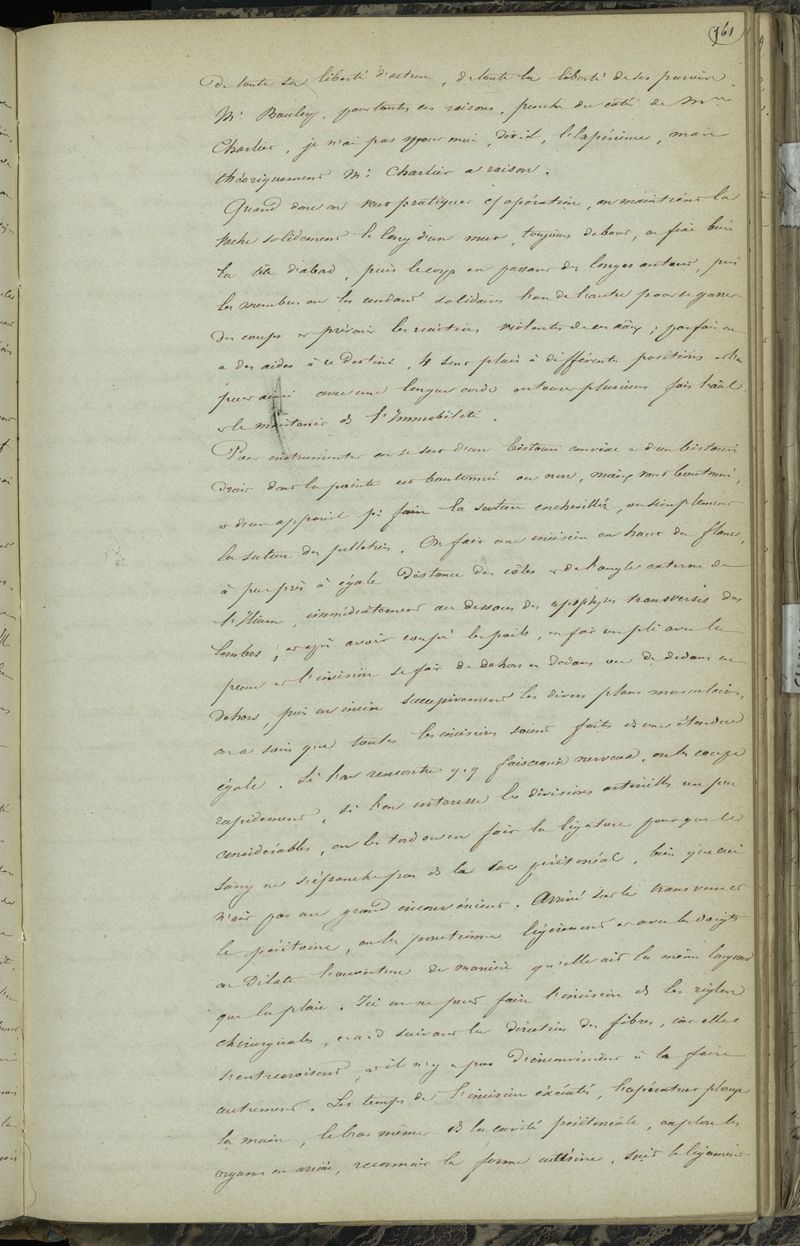 161
De toute sa liberté d'action, de toute la liberté de ses
Mr Bouley, pour toutes ces raisons, penche du côté de Mr
Charlier, je n'ai pas pour moi, dit-il, l'expérience, mais
théoriquement Mr Charlier a raison.
Quand donc on veut pratiquer cette opération, on maintient la
vache solidement le long d'un mur, toujours debout, on fixe bien
la tête d'abord, puis le corps en passant des longes autour, puis
les membres on les rendant solidaires l'un de l'autre pour se garer
des coups et prévenir les réactions violentes de ces aâux ; parfois on
a des aides à ce destinés, 4 sont placés à différentes positions
peut aussi avec une longue corde entourer plusieurs fois l'aâl
et le maintenir ds l'immobilité.
Pour instrumenter on se sert d'un bistouri convexe et d'un bistouri
droit dont la pointe est boutonnée ou non, mieux vaut boutonné,
et d'un appareil pr faire la suture enchevillée, ou simplement
la suture du pelletier. On fait une incision en haut du flanc,
à peu près à égale distance des côtes et de l'angle externe de
l'Ilium, immédiatement au dessous des apophyses transverses des
lombes ; et après avoir coupé les poils, on fait un pli avec la
peau et l'incision se fait de dehors en dedans ou de dedans en
dehors, puis on incise successivement les divers plans musculaires,
on a soin que toutes les incisions soient faites ds une étendue
égale. Si l'on rencontre qq faisceaux nerveux, on les coupe
rapidement, si l'on intéresse les divisions artérielles un peu
considérables, on les tord ou en fait la ligature pour que le
sang ne s'épanche pas ds le sac péritonéal, bien que ceci
n'ait pas un grand inconvénient. Arrivé sur le transverse et
le péritoine, on les ponctionne légèrement et avec les doigts
on dilate l'ouverture de manière qu'elle ait la même largeur
que la plaie. Ici on ne peut faire l'incision ds les règles
chirurgicales, c.a.d suivant la direction des fibres, car elles
s'entrecroisent, et il n'y a pas d'inconvénient à la faire
autrement. Les temps de l'incision exécutés, l'opérateur plonge
la main, le bras même ds la cavité péritonéale, explore les
organes en arrière, reconnait la forme utérine, suit le ligament